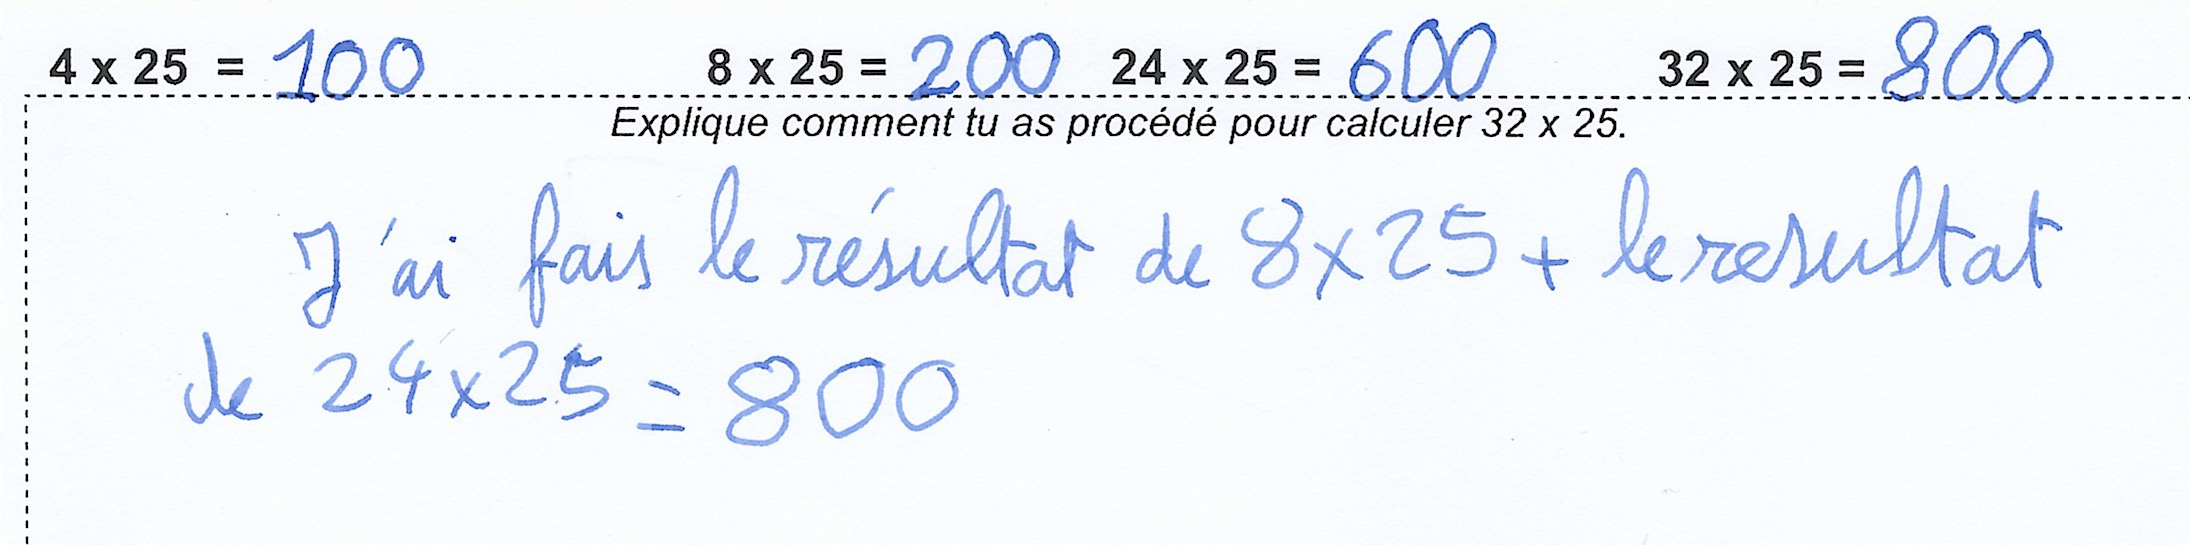 4 x 25 = 100 8 x 25 = 200 24 x 25 = 600 32 x 25 = 800
Explique comment tu as procédé pour calculer 32 x 25.
J'ai fais le résultat de 8x25 + le resultat
de 24x25 = 800